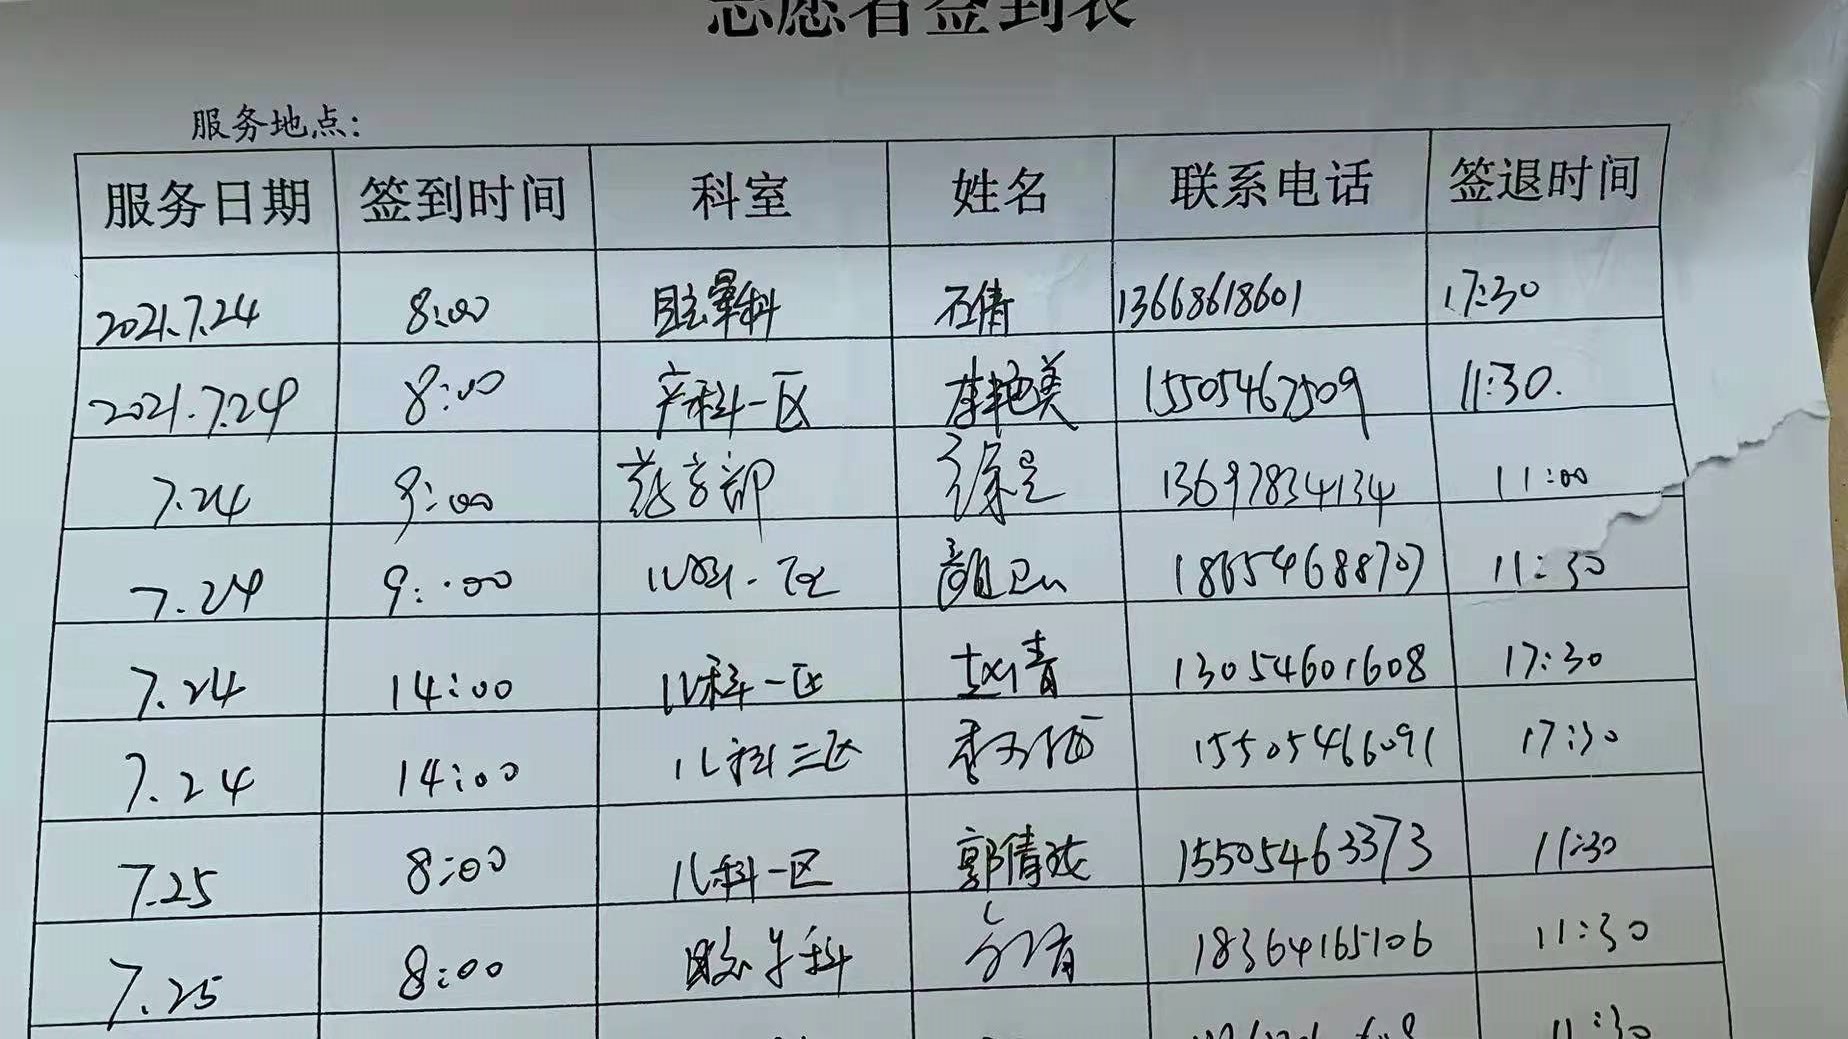 志愿者签到表
服务地点：
服务日期 签到时间 科室 姓名 联系电话 签退时间
2021.7.24 8:00 眩晕科 石倩 13668618601 17:30
2021.7.24 8:00 产科一区 李艳美 15505462509 11:30.
7.24 9:00 药学部 徐 13697834134 11:00
7.24 9:00 颜 11:30
7.24 14:00 儿科一区 赵青 13054601608 17:30
7.24 14:00 儿科三区 李 15505466091 17:30
7.25 8:00 儿科一区 郭倩 15505463373 11:30
7.25 8:00 科 18364165106 11:30
11:30